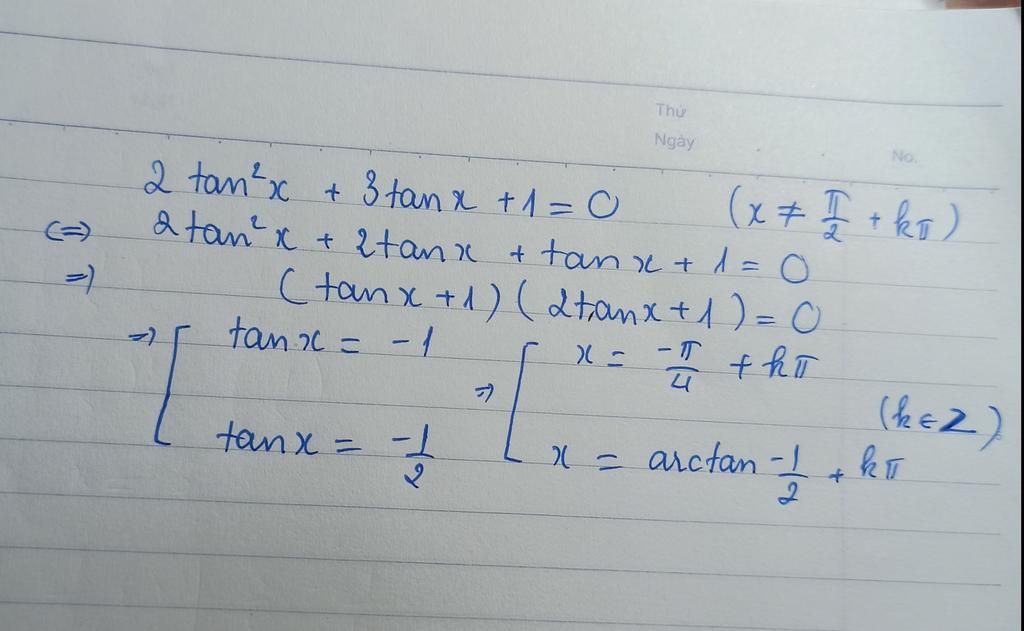 Thứ
Ngày
No.
2 tan²x + 3tanx + 1 = 0 (x ≠ π/2 + kπ)
<=> 2tan²x + 2tanx + tanx + 1 = 0
=> (tanx + 1)(2tanx + 1) = 0
=> [ tanx = -1 => [ x = -π/4 + kπ
(k ∈ Z)
tanx = -1/2 x = arctan -1/2 + kπ